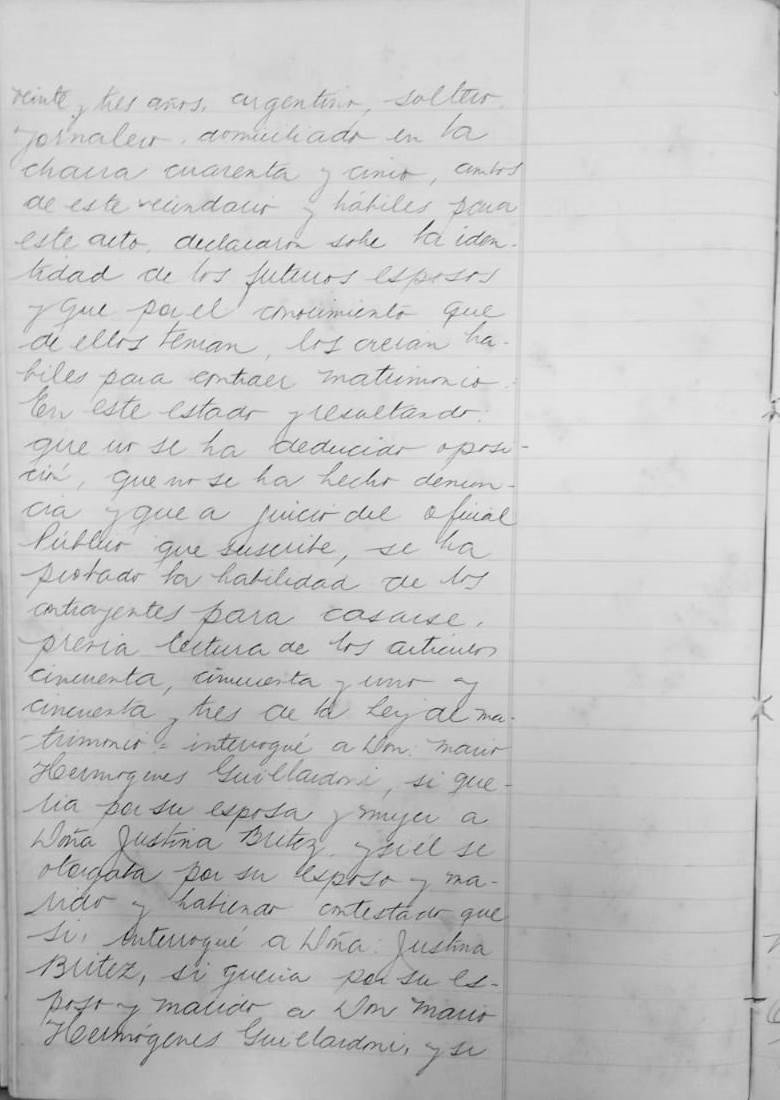 veinte y tres años, argentino, soltero,
jornalero, domiciliado en la
chacra cuarenta y cinco, ambos
de este vecindario y hábiles para
este acto, declararon sobre la iden-
tidad de los futuros esposos
y que por el conocimiento que
de ellos tenian, los creian ha-
biles para contraer matrimonio.
En este estado y resultando
que no se ha deducido oposi-
ción, que no se ha hecho denun-
cia y que a juicio del Oficial
Público que suscribe, se ha
probado la habilidad de los
contrayentes para casarse,
previa lectura de los artículos
cincuenta, cincuenta y uno y
cincuenta y tres de la Ley de ma-
trimonio = interrogué a Don: Mario
Hermogenes Guillardoni, si que-
ria por su esposa y mujer a
Doña Justina Britez y si él se
otorgaba por su esposo y ma-
rido y habiendo contestado que
si, interrogué a Doña: Justina
Britez, si queria por su es-
poso y marido a Don Mario
Hermógenes Guillardoni, y si